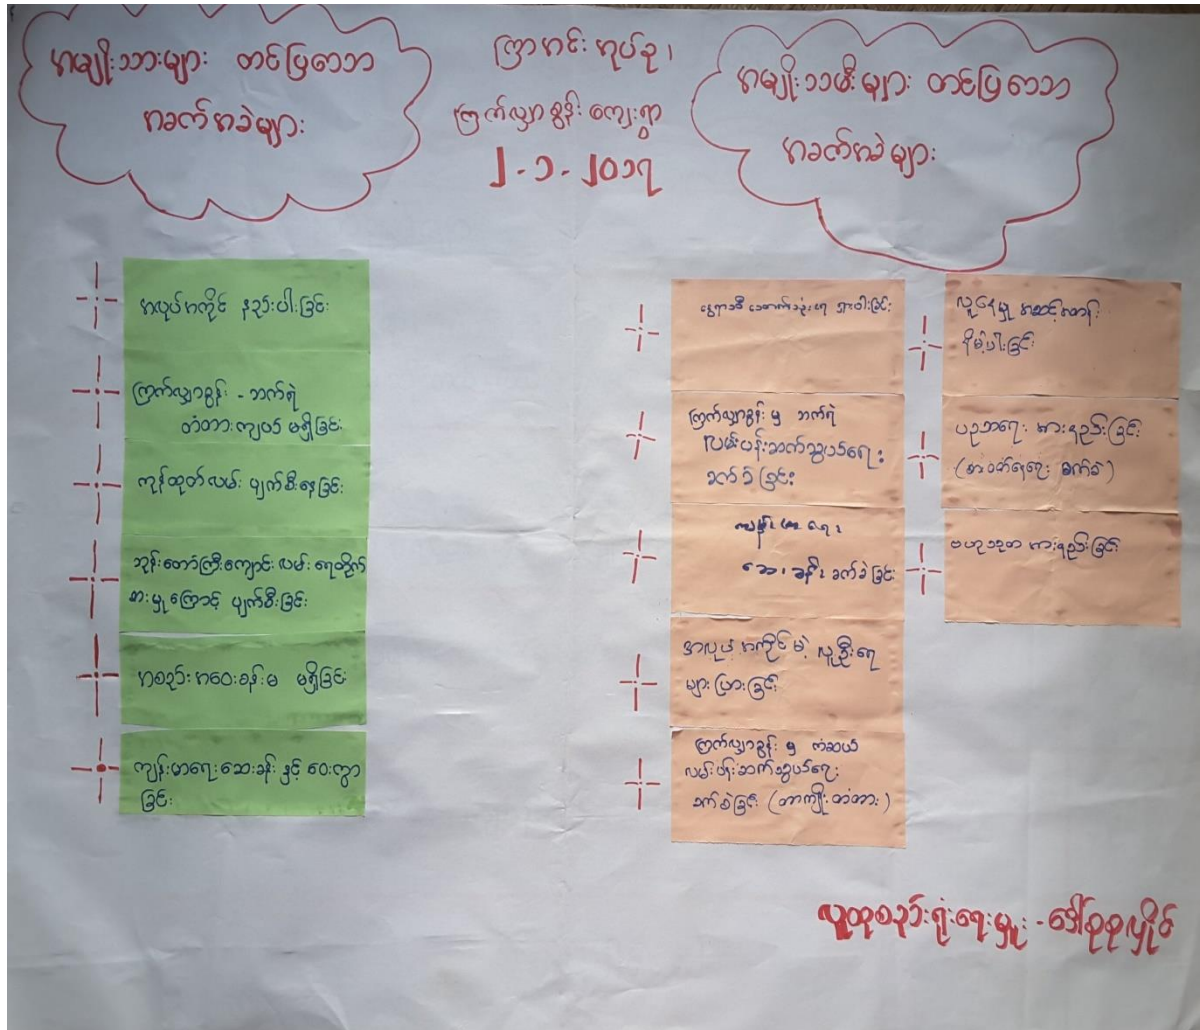 အမျိုးသားများ တင်ပြသော
အခက်အခဲများ
ကြာအင်းအုပ်စု၊
ကြက်လျှာစွန်းကျေးရွာ
၂.၁.၂၀၁၇
အမျိုးသမီးများ တင်ပြသော
အခက်အခဲများ
အလုပ်အကိုင် နည်းပါးခြင်း
ကြက်လျှာစွန်း - ဘက်ရဲ
တံတားကျယ် မရှိခြင်း
ကုန်ထုတ်လမ်း ပျက်စီးနေခြင်း
ဘုန်းတော်ကြီးကျောင်းလမ်း ရေတိုက်
စားမှုကြောင့် ပျက်စီးခြင်း
အစည်းအဝေးခန်းမ မရှိခြင်း
ကျန်းမာရေးဆေးခန်း နှင့် ဝေးကွာ
ခြင်း
နွေရာသီ သောက်သုံးရေ ရှားပါးခြင်း
ကြက်လျှာစွန်း မှ ဘက်ရဲ
လမ်းပန်းဆက်သွယ်ရေး
ခက်ခဲခြင်း
ကျန်းမာရေး
ဆေးခန်း ခက်ခဲခြင်း
အလုပ်အကိုင်မဲ့ လူဦးရေ
များပြားခြင်း
ကြက်လျှာစွန်း မှ ကံဆယ်
လမ်းပန်းဆက်သွယ်ရေး
ခက်ခဲခြင်း (တာကျိုး တံတား)
လူနေမှု အဆင့်အတန်း
နိမ့်ပါးခြင်း
ပညာရေး အားနည်းခြင်း
ဗဟုသုတ အားနည်းခြင်း
လူထုစည်းရုံးရေးမှူး - ဒေါ်စုစုလှိုင်